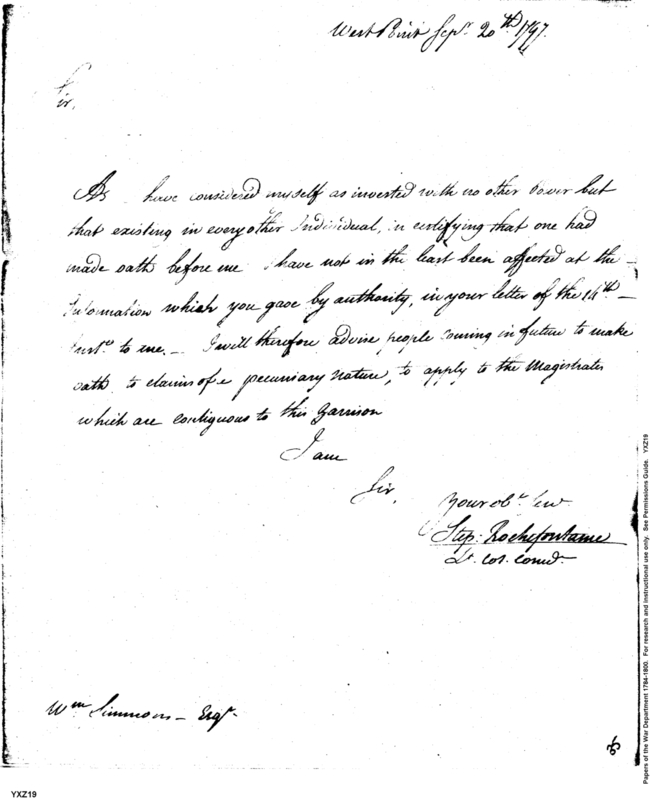 West Point Sepr. 20th 1797.
Sir,
As I have considered myself as invested with no other Power but
that existing in every other Individual, in certifying that one had
made oath before me I have not in the least been affected at the
Information which you gave by authority, in your letter of the 14th
Inst. to me. I will therefore advise people coming in future to make
oath to claims of a pecuniary nature, to apply to the Magistrates
which are contiguous to this Garrison
I am
Sir,
Your obt. Serv.
Step: Rochefontaine
Lt. Col. Comd.
Wm Simmons Esqr.
YXZ19
Papers of the War Department 1784-1800. For research and instructional use only. See Permissions Guide. YXZ19